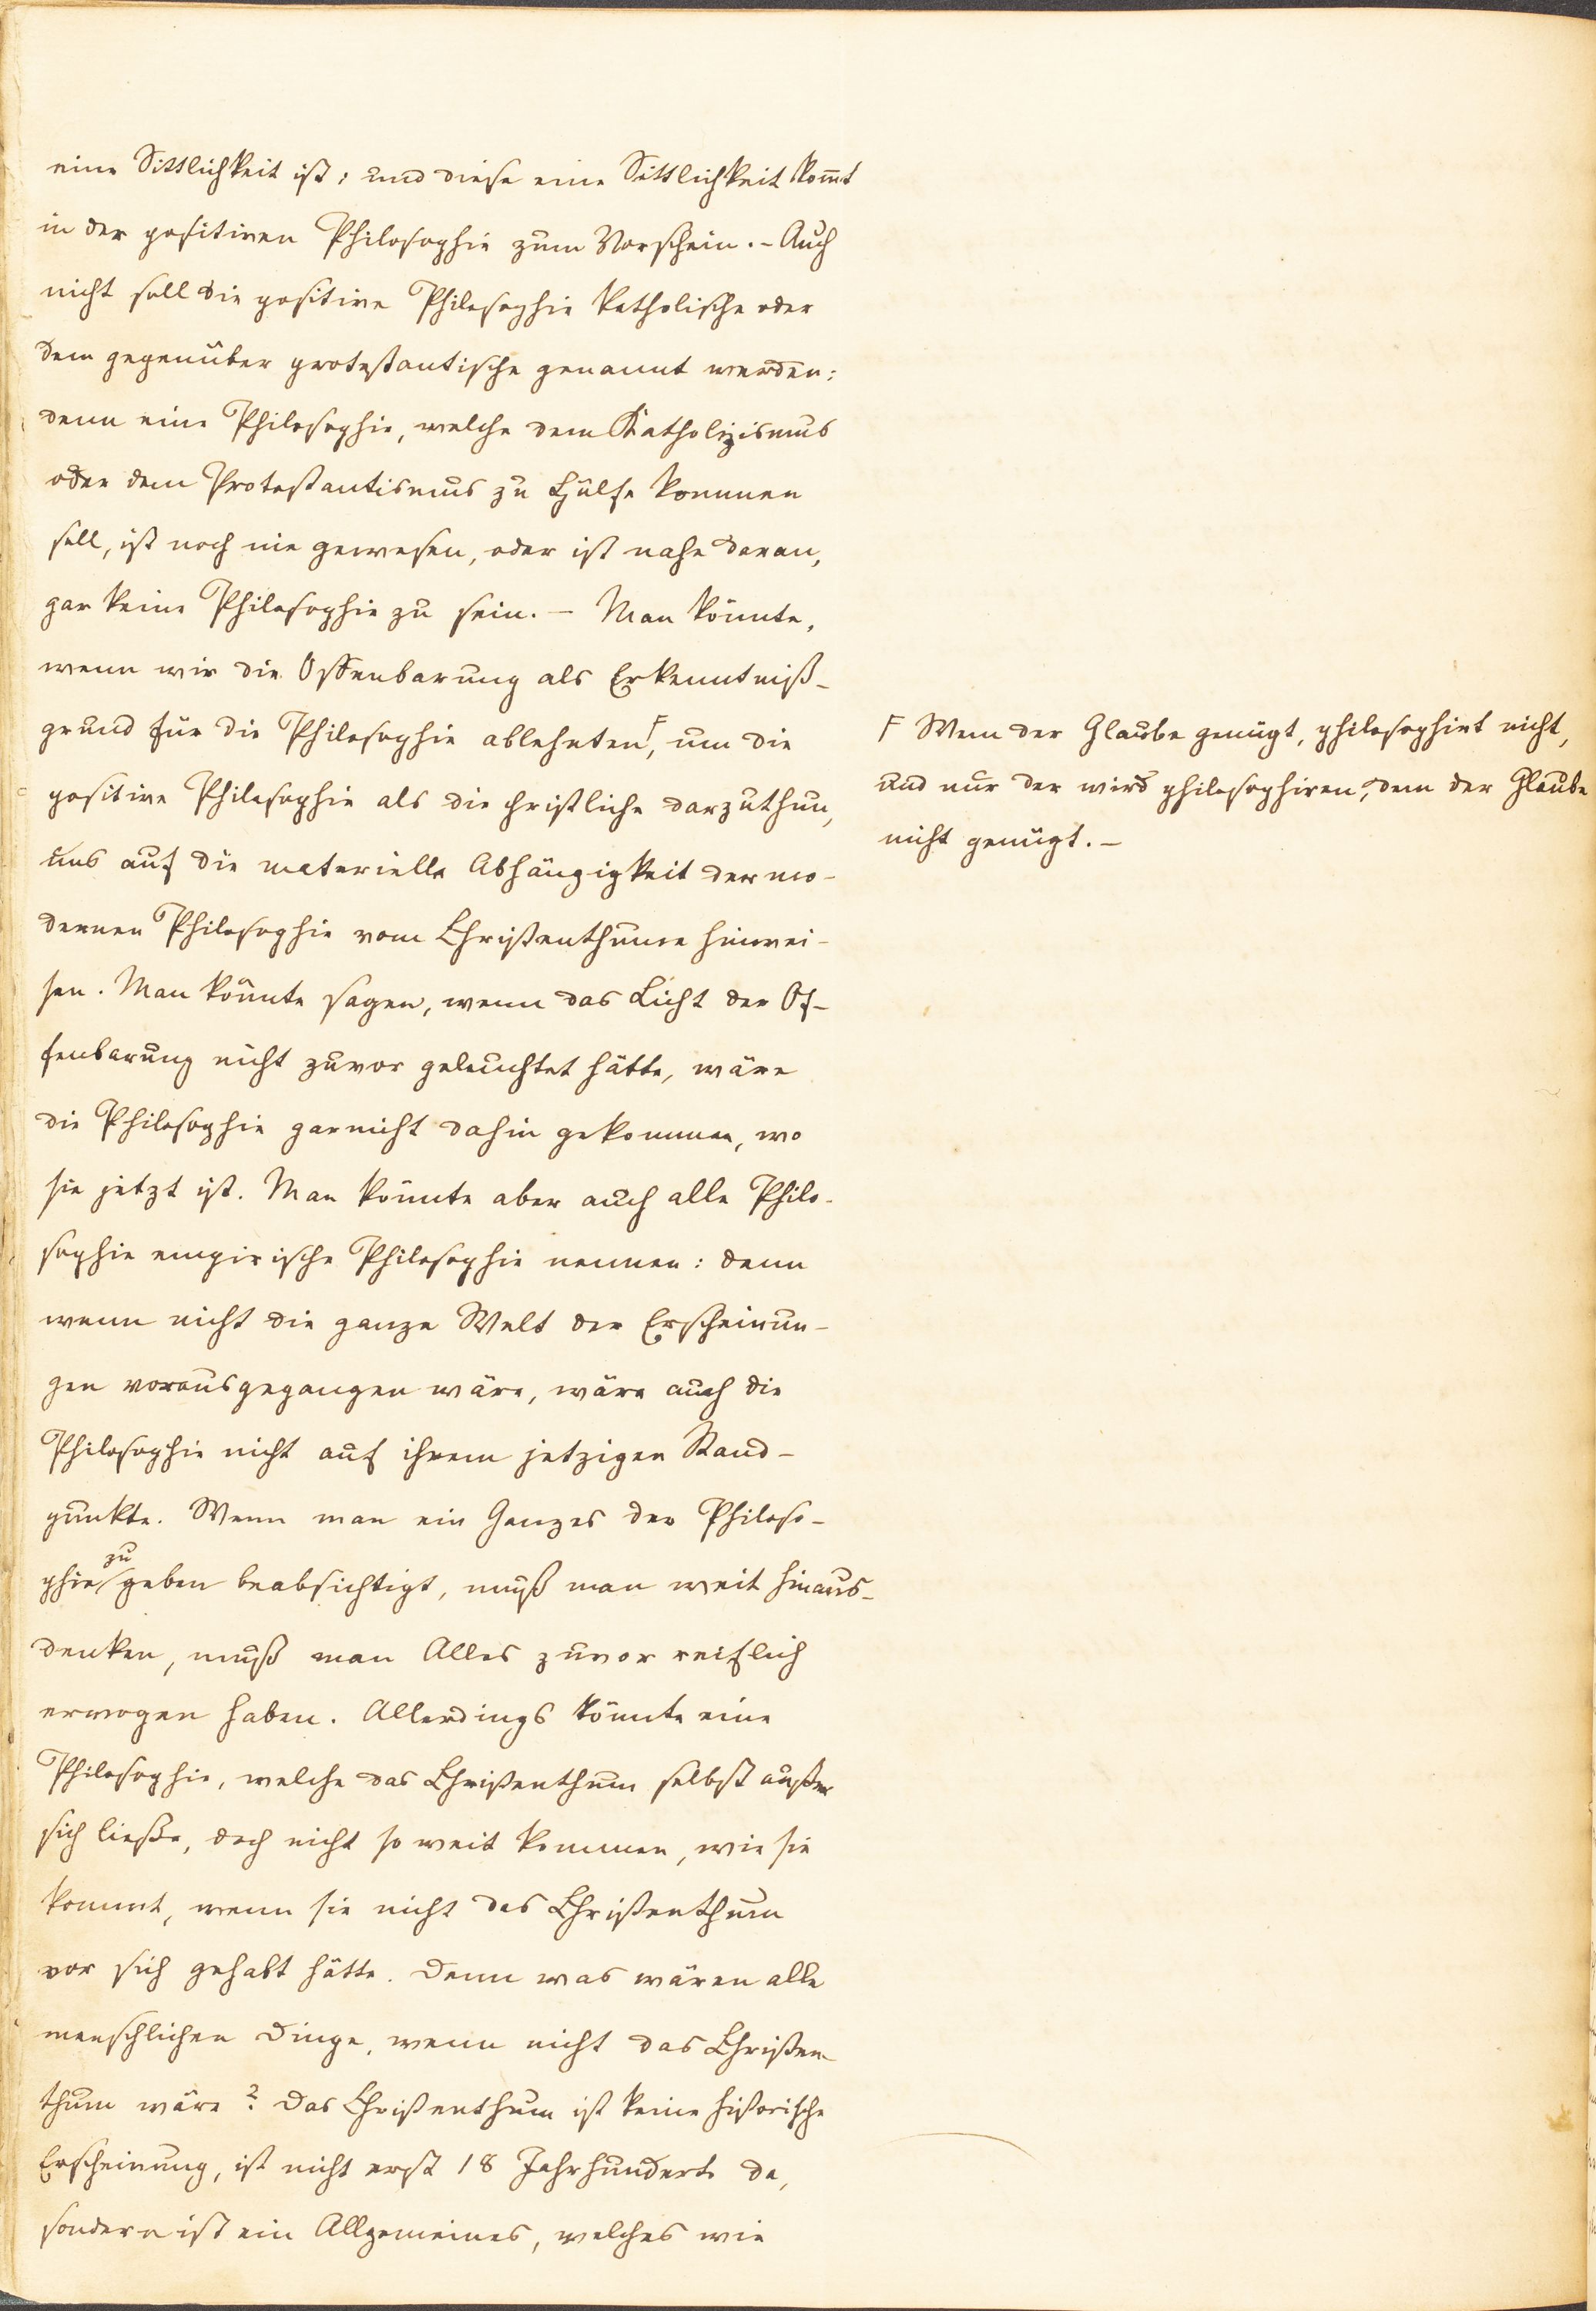 eine Sittlichkeit ist; und diese eine Sittlichkeit kom̅t
in der positiven Philosophie zum Vorschein. - Auch
nicht soll die positive Philosophie katholische oder
dem gegenüber protestantische genannt werden:
denn eine Philosophie, welche dem Katholizismus
oder dem Protestantismus zu Hülfe kommen
soll, ist noch nie gewesen, oder ist nahe daran,
gar keine Philosophie zu sein. - Man könnte,
wenn wir die Offenbarung als Erkenntniß-
grund für die Philosophie ablehnten F, um die
positive Philosophie als die christliche darzuthun,
uns auf die materielle Abhängigkeit der mo-
dernen Philosophie vom Christenthume hinwei-
sen. Man könnte sagen, wenn das Licht der Of-
fenbarung nicht zuvor geleuchtet hätte, wäre
die Philosophie gar nicht dahin gekommen, wo
sie jetzt ist. Man könnte aber auch alle Philo-
sophie empirische Philosophie nennen: denn
wenn nicht die ganze Welt der Erscheinun-
gen vorausgegangen wäre, wäre auch die
Philosophie nicht auf ihrem jetzigen Stand-
punkte. Wenn man ein Ganzes der Philoso-
phie zu geben beabsichtigt, muß man weit hinaus-
denken, muß man Alles zuvor reiflich
erwogen haben. Allerdings könnte eine
Philosophie, welche das Christenthum selbst außer
sich ließe, doch nicht so weit kommen, wie sie
kommt, wenn sie nicht das Christenthum
vor sich gehabt hätte. Denn was wären alle
menschlichen Dinge, wenn nicht das Christen-
thum wäre? Das Christenthum ist keine historische
Erscheinung, ist nicht erst 18 Jahrhunderte da,
sondern ist ein Allgemeines, welches wie
F Wem der Glaube genügt, philosophirt nicht,
und nur der wird philosophiren, dem der Glaube
nicht genügt. -